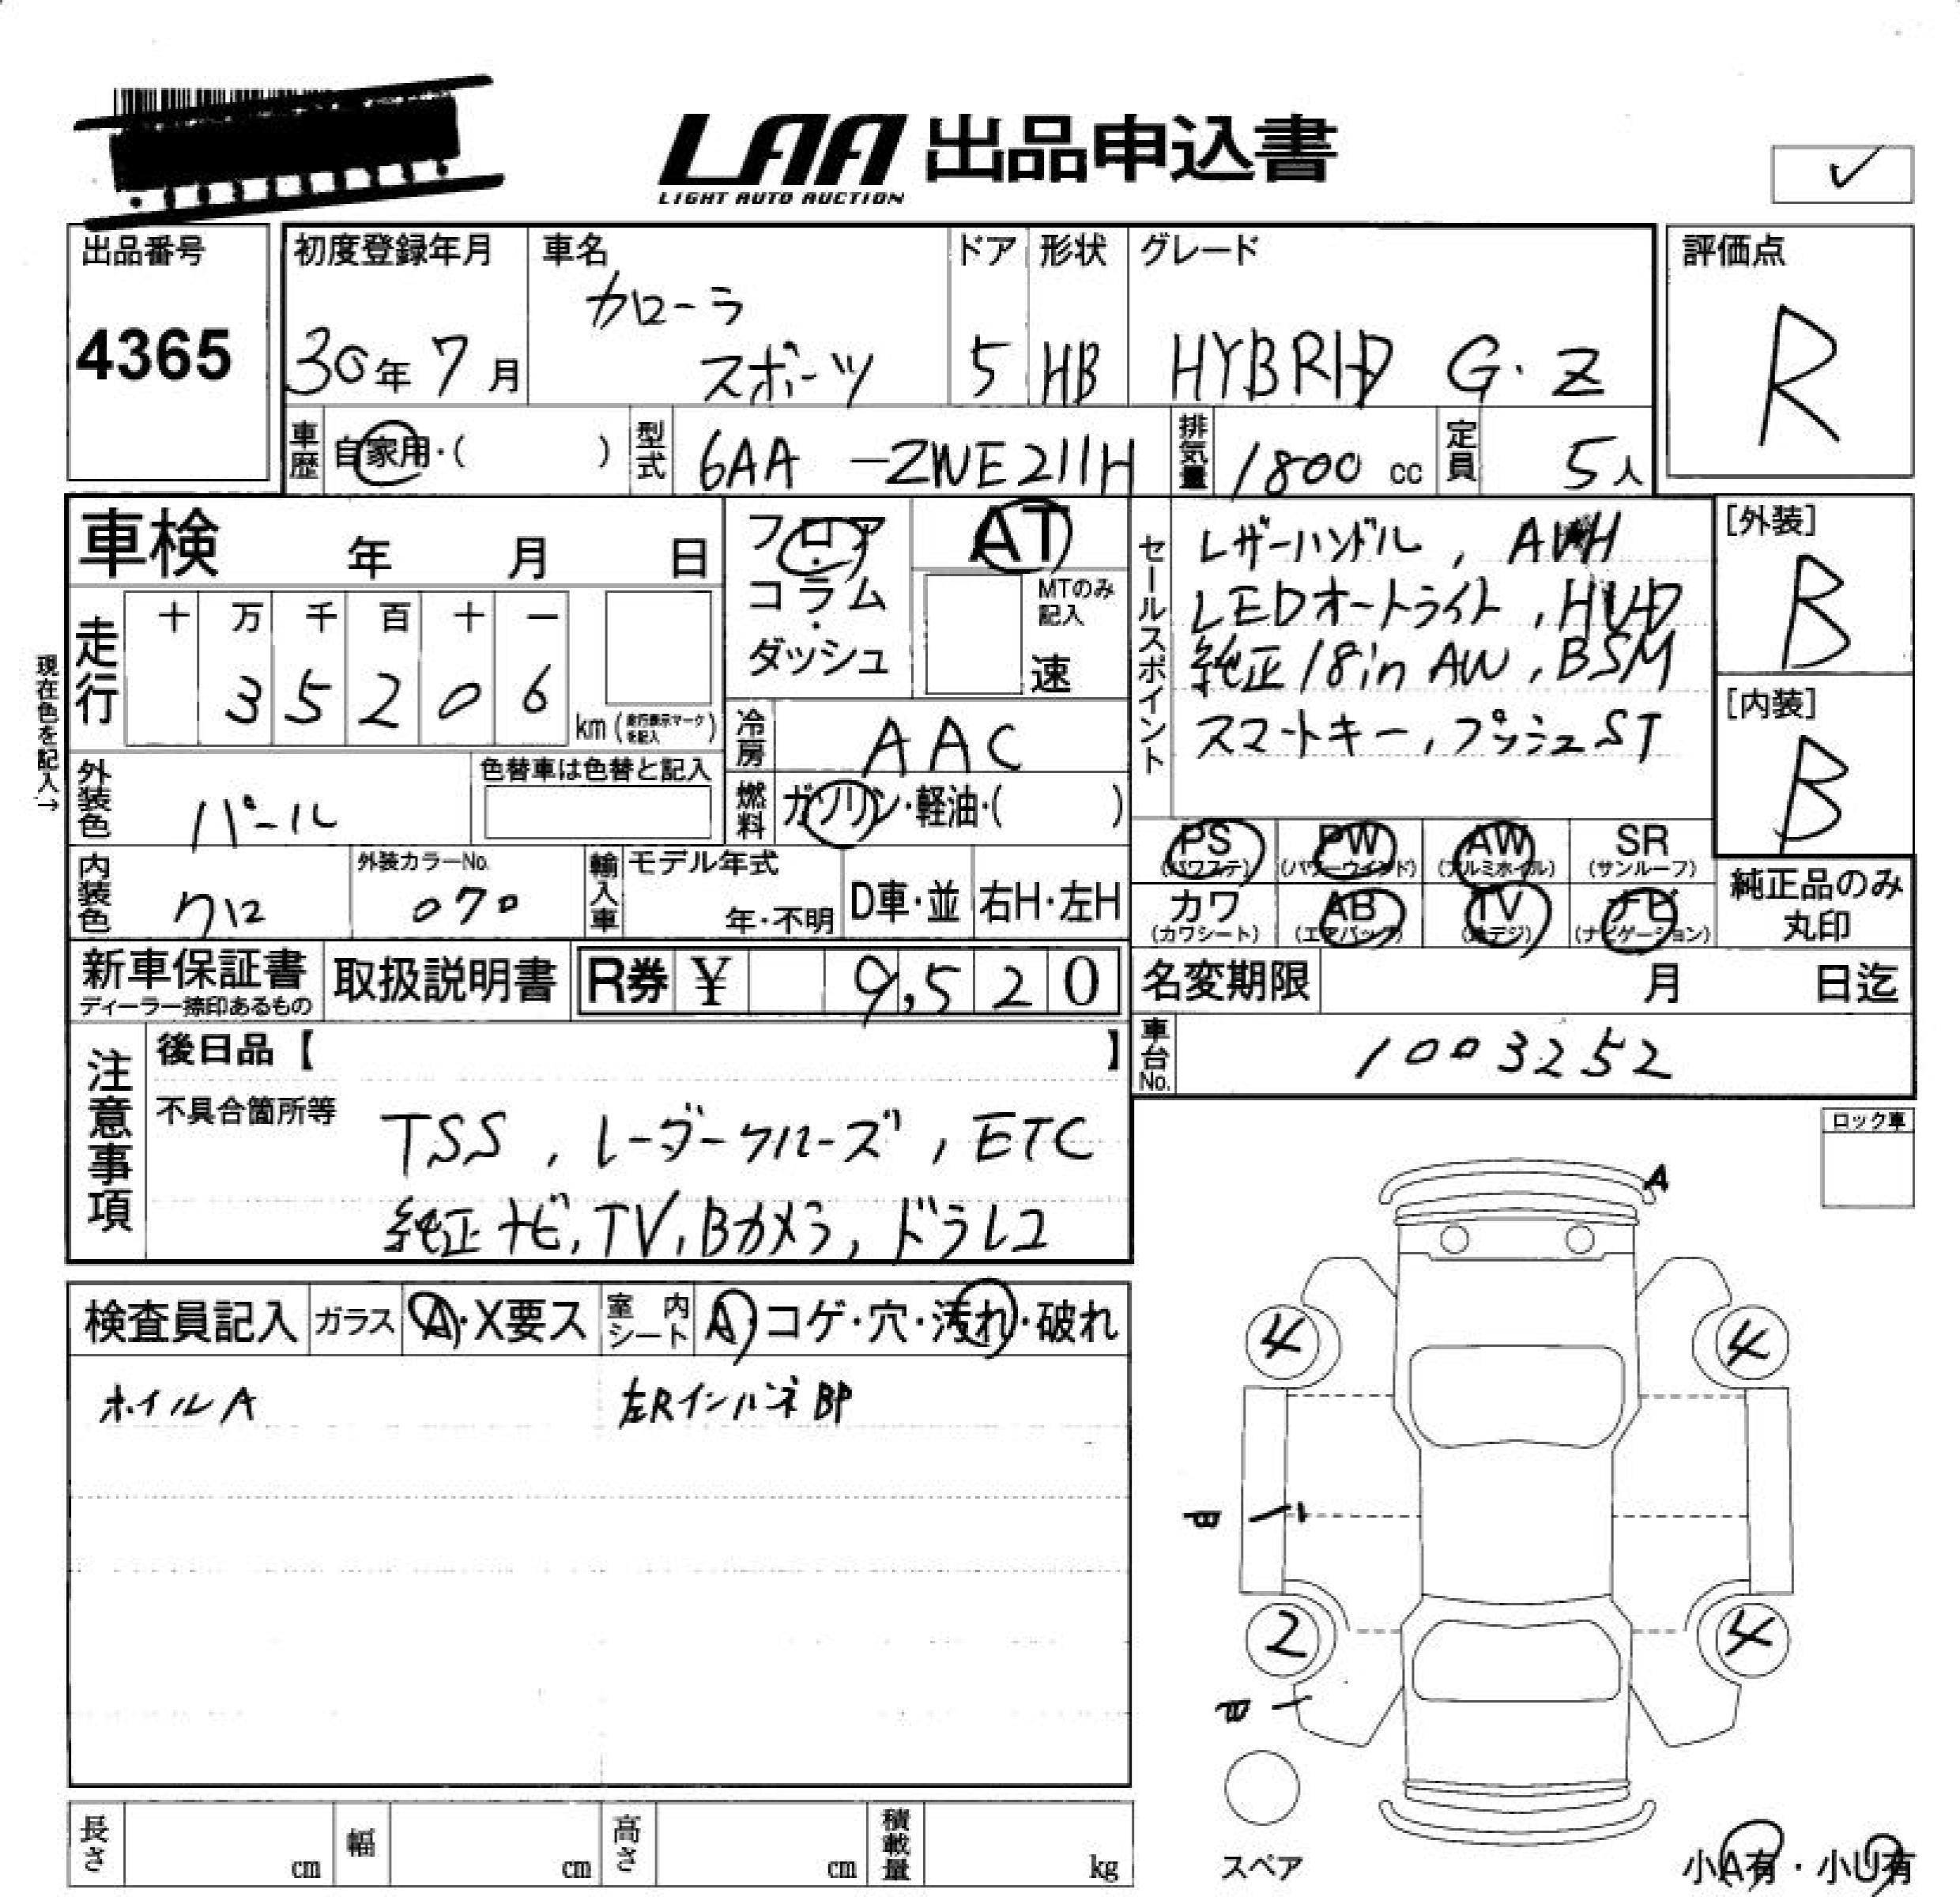 LAA 出品申込書
LIGHT AUTO AUCTION
✓
出品番号
4365
初度登録年月
30年 7月
車名
カローラ
スポーツ
ドア
5
形状
HB
グレード
HYBRID G・Z
評価点
R
車歴 自家用・( )
型式 6AA -ZWE211H
排気量 1800 cc
定員 5人
車検 年 月 日
フロア
・
コラム
・
ダッシュ
AT
MTのみ
記入
速
セールスポイント
レザーハンドル, AVH
LEDオートライト, HUD
純正18in AW, BSM
スマートキー, プッシュST
[外装]
B
[内装]
B
現在色を記入→
走行
十 万 千 百 十 一
3 5 2 0 6
km (走行表示マークを記入)
冷房 AAC
外装色 パール
色替車は色替と記入
燃料 ガソリン・軽油・( )
PS (パワステ)
PW (パワーウインド)
AW (アルミホイル)
SR (サンルーフ)
カワ (カワシート)
AB (エアバッグ)
TV (地デジ)
ナビ (ナビゲーション)
純正品のみ
丸印
内装色 クロ
外装カラーNo.
070
輸入車
モデル年式
年・不明
D車・並
右H・左H
新車保証書
ディーラー捺印あるもの
取扱説明書
R券 ¥ 9,520
名変期限 月 日迄
車台No. 1003252
注意事項
後日品【 】
不具合箇所等
TSS, レーダークルーズ, ETC
純正ナビ, TV, Bカメラ, ドラレコ
ロック車
A
検査員記入
ガラス A・X要ス
室内シート A・コゲ・穴・汚れ・破れ
ホイルA
左Rインハネ BP
4 4
B
2 4
B
スペア
小A有・小U有
長さ cm
幅 cm
高さ cm
積載量 kg